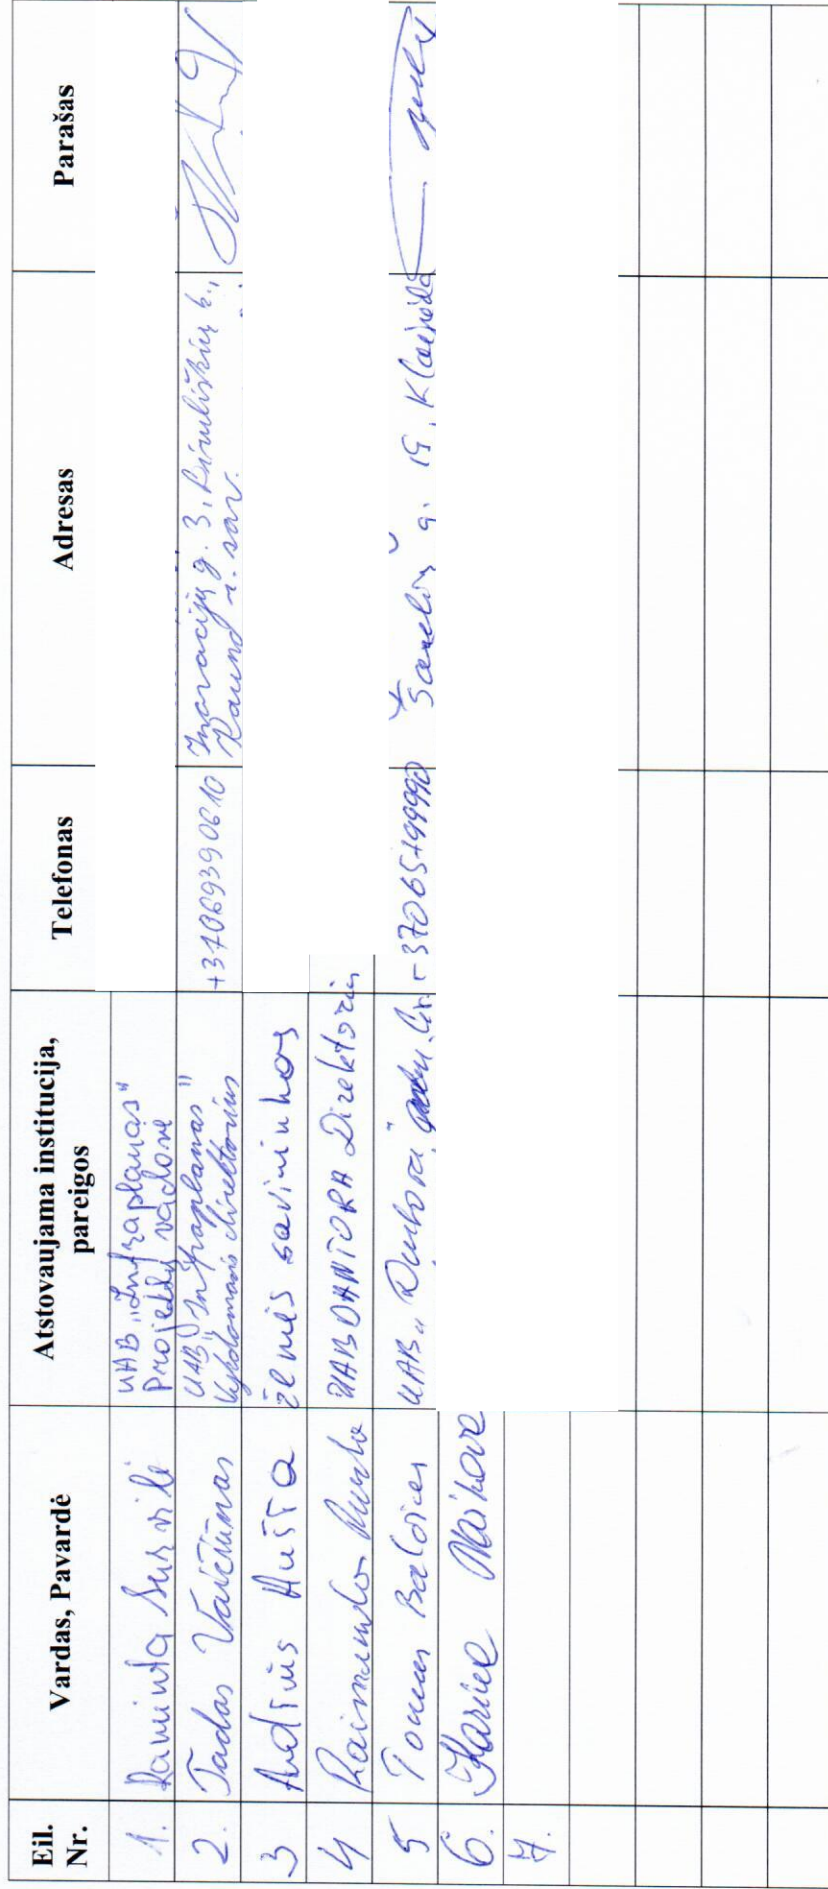 Eil. Nr. Vardas, Pavardė Atstovaujama institucija, pareigos Telefonas Adresas Parašas
1. Raminta Survilė UAB „Infraplanas" Projektų vadovė
2. Tadas Vaičiūnas UAB „Infraplanas" Vykdomasis direktorius +37069390610 Inovacijų g. 3, Biruliškių k., Kauno r. sav.
3 Andrius žemės savininkas
4 Raimundas UAB DANTORA Direktorius
5 Tomas UAB „ +37065799990 g. 19, Klaipėda
6. Karina
7.